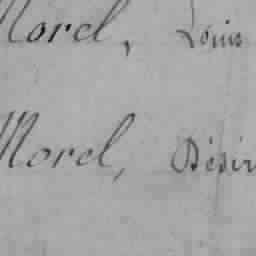 Morel, Louis
Morel, Désir